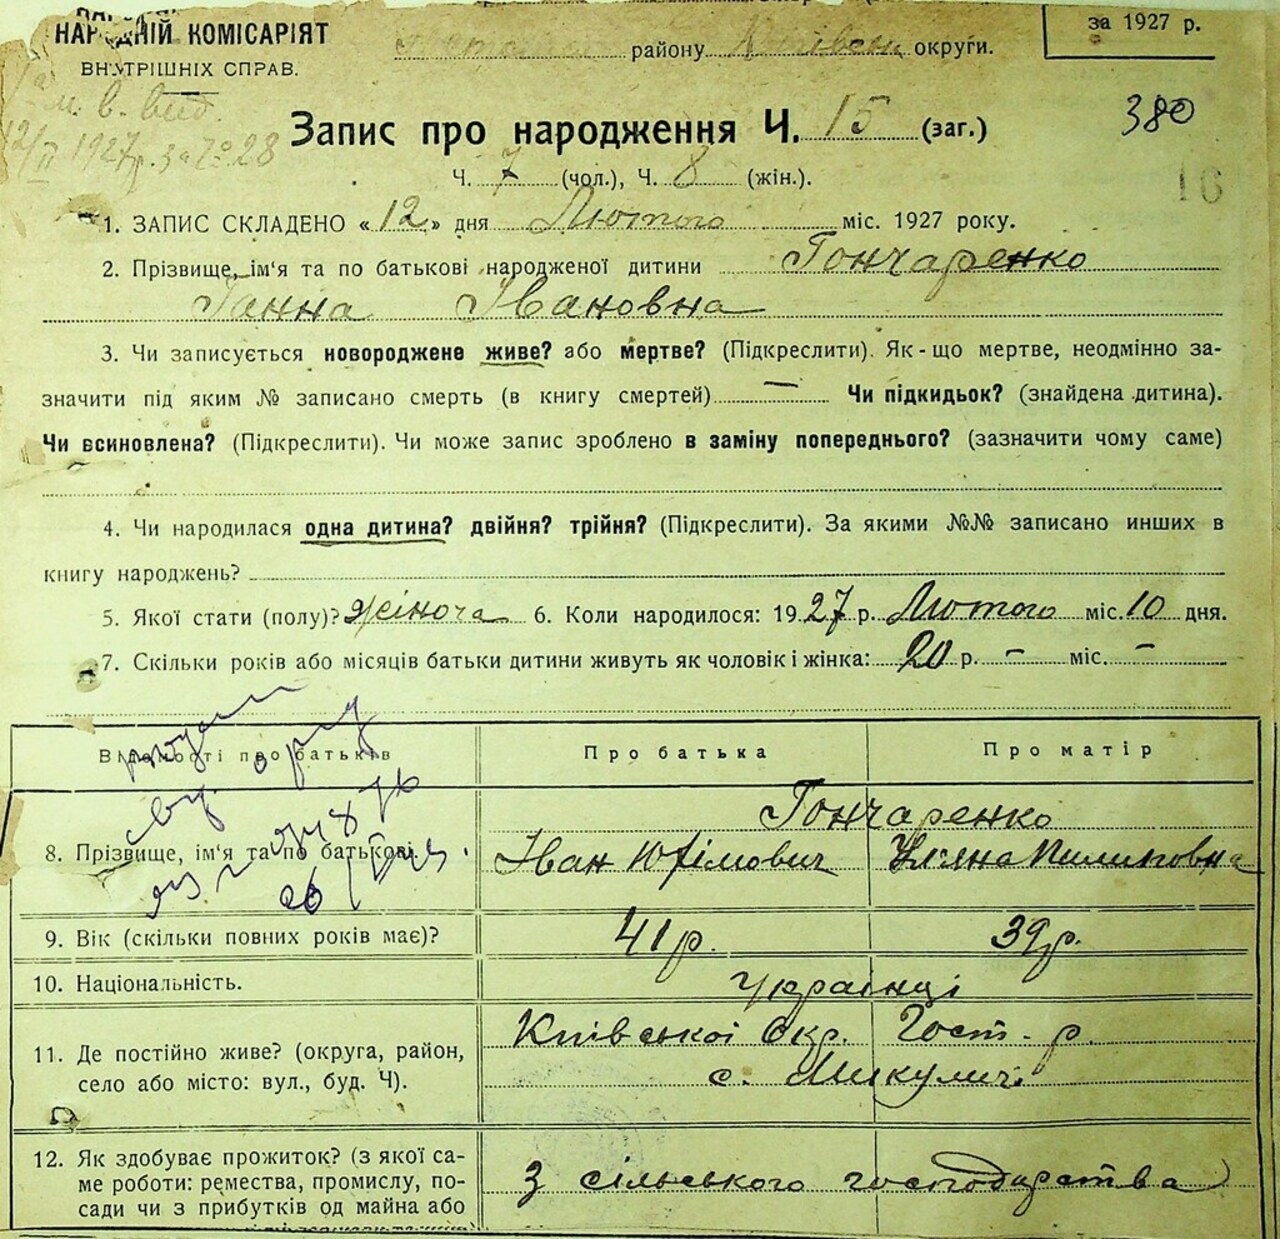 НАРОДНІЙ КОМІСАРІЯТ
ВНУТРІШНІХ СПРАВ.
району Київськ округи.
за 1927 р.
м. в. вид.
12/II 1927р. за № 28
Запис про народження Ч. 15 (заг.)
380
Ч. 7 (чол.), Ч. 8 (жін.).
16
1. ЗАПИС СКЛАДЕНО «12» дня Лютого міс. 1927 року.
2. Прізвище, ім'я та по батькові народженої дитини Гончаренко
Ганна Івановна
3. Чи записується новороджене живе? або мертве? (Підкреслити). Як-що мертве, неодмінно за-
значити під яким № записано смерть (в книгу смертей) — Чи підкидьок? (знайдена дитина).
Чи всиновлена? (Підкреслити). Чи може запис зроблено в заміну попереднього? (зазначити чому саме)
4. Чи народилася одна дитина? двійня? трійня? (Підкреслити). За якими №№ записано инших в
книгу народжень?
5. Якої стати (полу)? жіноча 6. Коли народилося: 1927 р. Лютого міс. 10 дня.
7. Скільки років або місяців батьки дитини живуть як чоловік і жінка: 20 р. – міс. –
Відомості про батьків Про батька Про матір
Гончаренко
8. Прізвище, ім'я та по батькові. Іван Юфімович Уляна Пилиповна
9. Вік (скільки повних років має)? 41 р. 39 р.
10. Національність. українці
11. Де постійно живе? (округа, район, Київської Окр. Гост. р.
село або місто: вул., буд. Ч). с. Микуличі
12. Як здобуває прожиток? (з якої са-
ме роботи: ремества, промислу, по- з сільського господарства
сади чи з прибутків од майна або